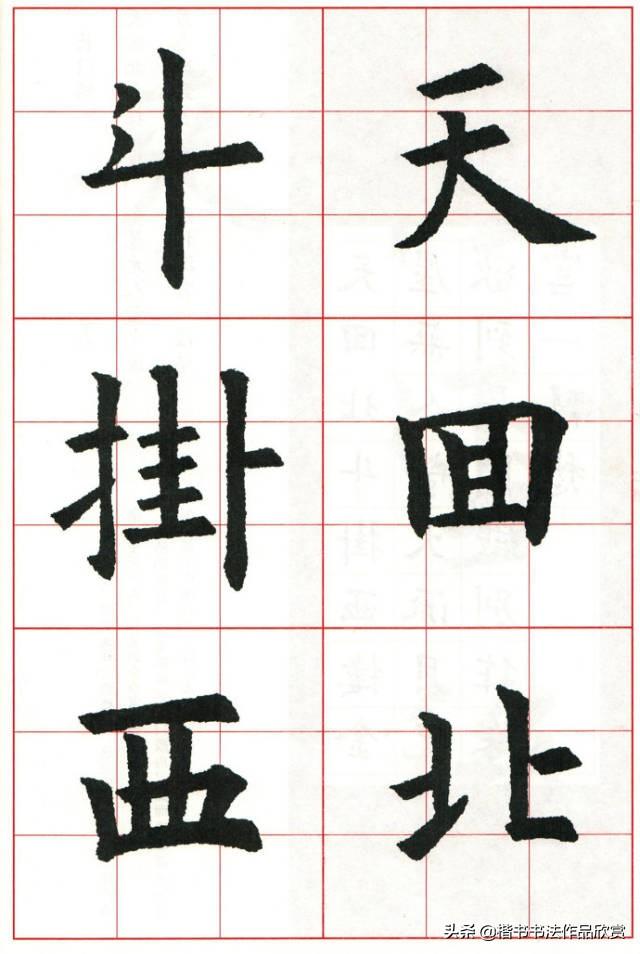 天囬北
斗掛西
头条 @楷书书法作品欣赏